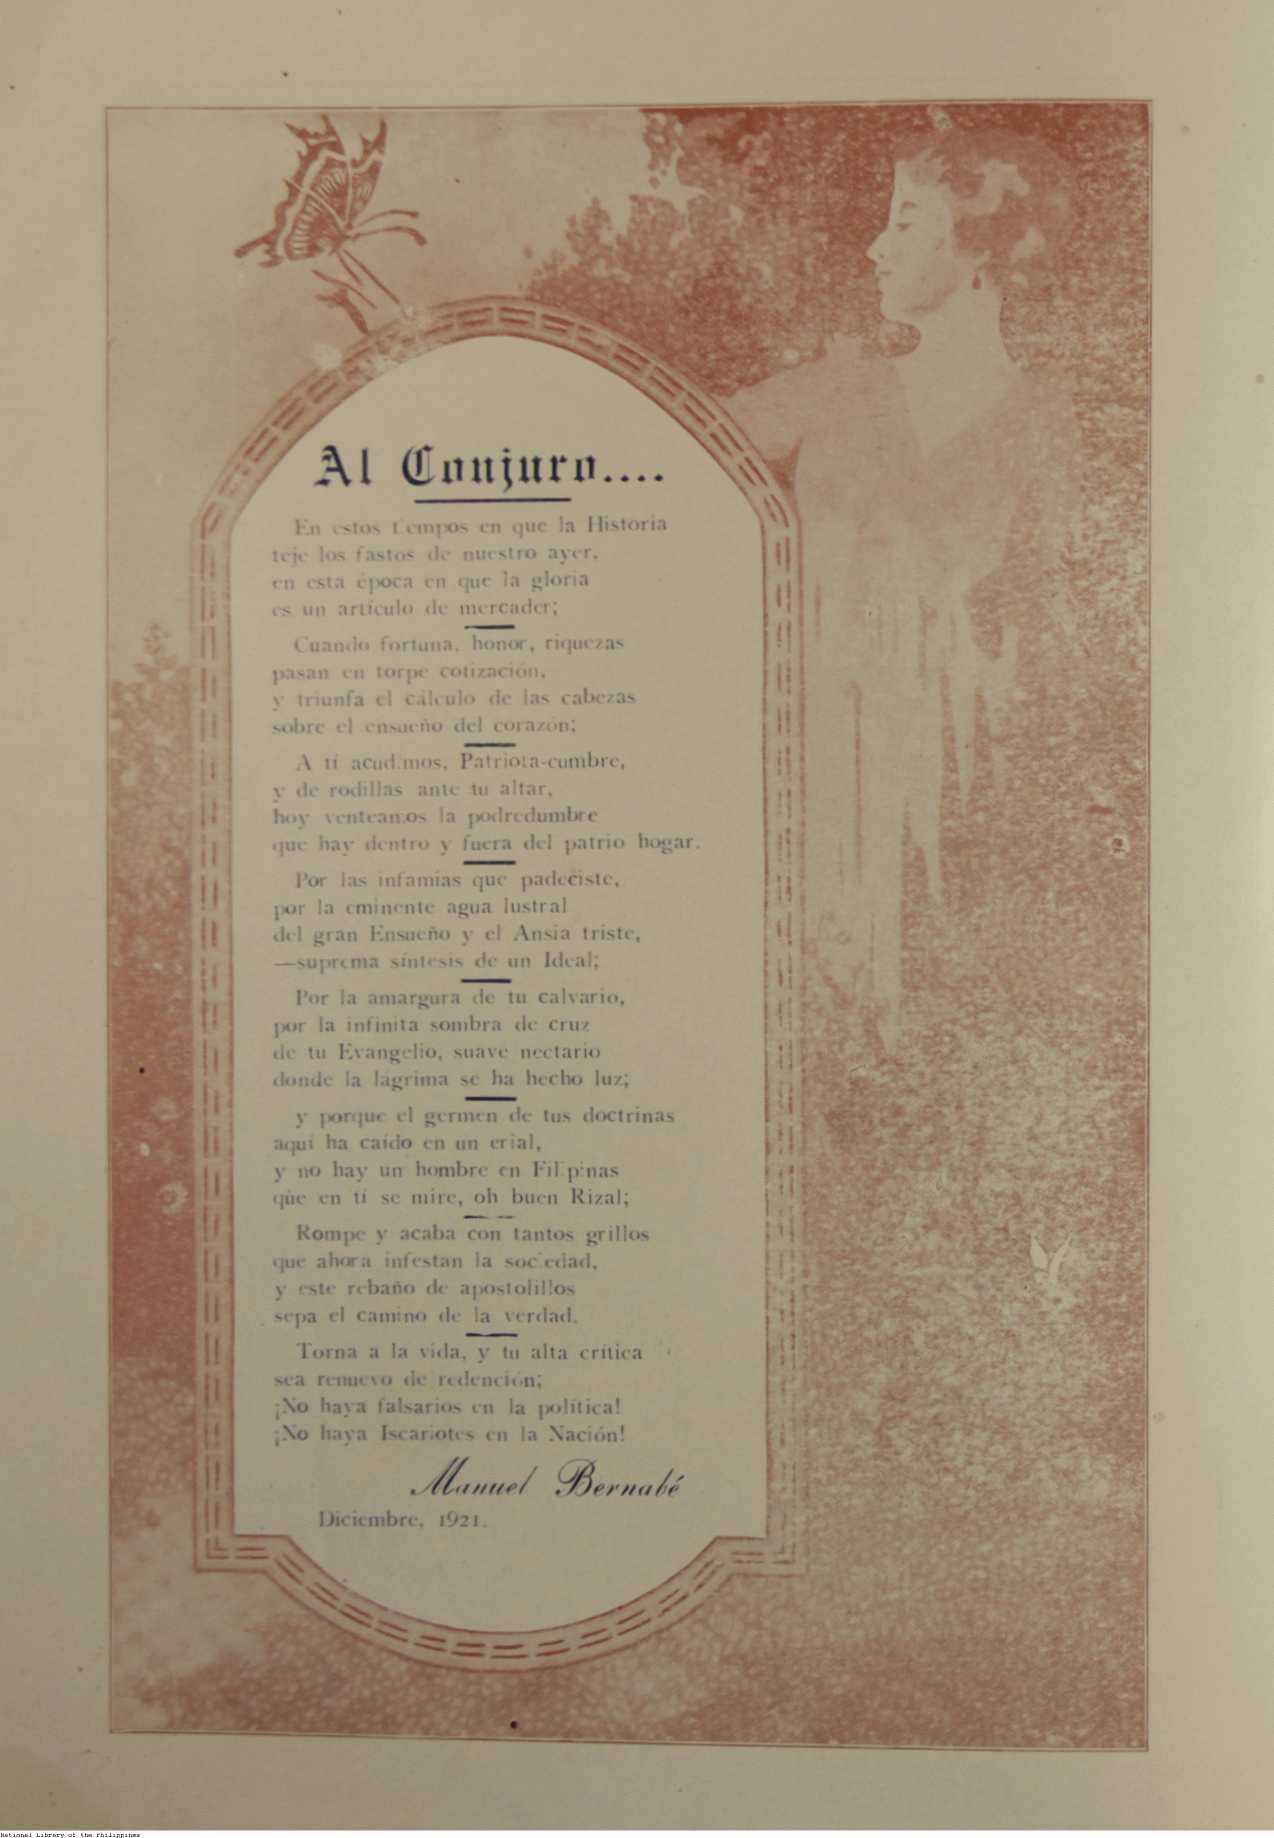 Al Conjuro....
En estos tiempos en que la Historia
teje los fastos de nuestro ayer,
en esta época en que la gloria
es un artículo de mercader;
Cuando fortuna, honor, riquezas
pasan en torpe cotización,
y triunfa el cálculo de las cabezas
sobre el ensueño del corazón;
A tí acudimos, Patriota-cumbre,
y de rodillas ante tu altar,
hoy venteamos la podredumbre
que hay dentro y fuera del patrio hogar.
Por las infamias que padeciste,
por la eminente agua lustral
del gran Ensueño y el Ansia triste,
—suprema síntesis de un Ideal;
Por la amargura de tu calvario,
por la infinita sombra de cruz
de tu Evangelio, suave nectario
donde la lágrima se ha hecho luz;
y porque el germen de tus doctrinas
aquí ha caído en un erial,
y no hay un hombre en Filipinas
que en tí se mire, oh buen Rizal;
Rompe y acaba con tantos grillos
que ahora infestan la sociedad,
y este rebaño de apostolillos
sepa el camino de la verdad.
Torna a la vida, y tu alta crítica
sea renuevo de redención;
¡No haya falsarios en la política!
¡No haya Iscariotes en la Nación!
Manuel Bernabé
Diciembre, 1921.
National Library of the Philippines